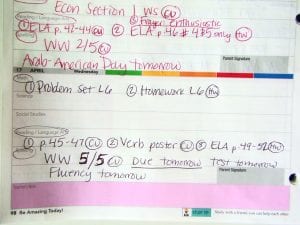 Econ Section 1 WS CW
② Frayer Enthusiastic
① ELA p. 42-44 CW ② ELA p. 46 # 4 $ 5 only HW
WW 2/5 CW
Arab American Day tomorrow
Parent Signature
APRIL Wednesday
① Problem Set L6 ② Homework L6 HW
Science
Social Studies
Reading / Language Arts
① p. 45-47 CW ② Verb poster CW ③ ELA p. 49-52 HW
WW 5/5 CW Due tomorrow Test tomorrow
Fluency tomorrow
Parent Signature
98 Be Amazing Today!
STUDY TIP Study with a friend; you can help each other.